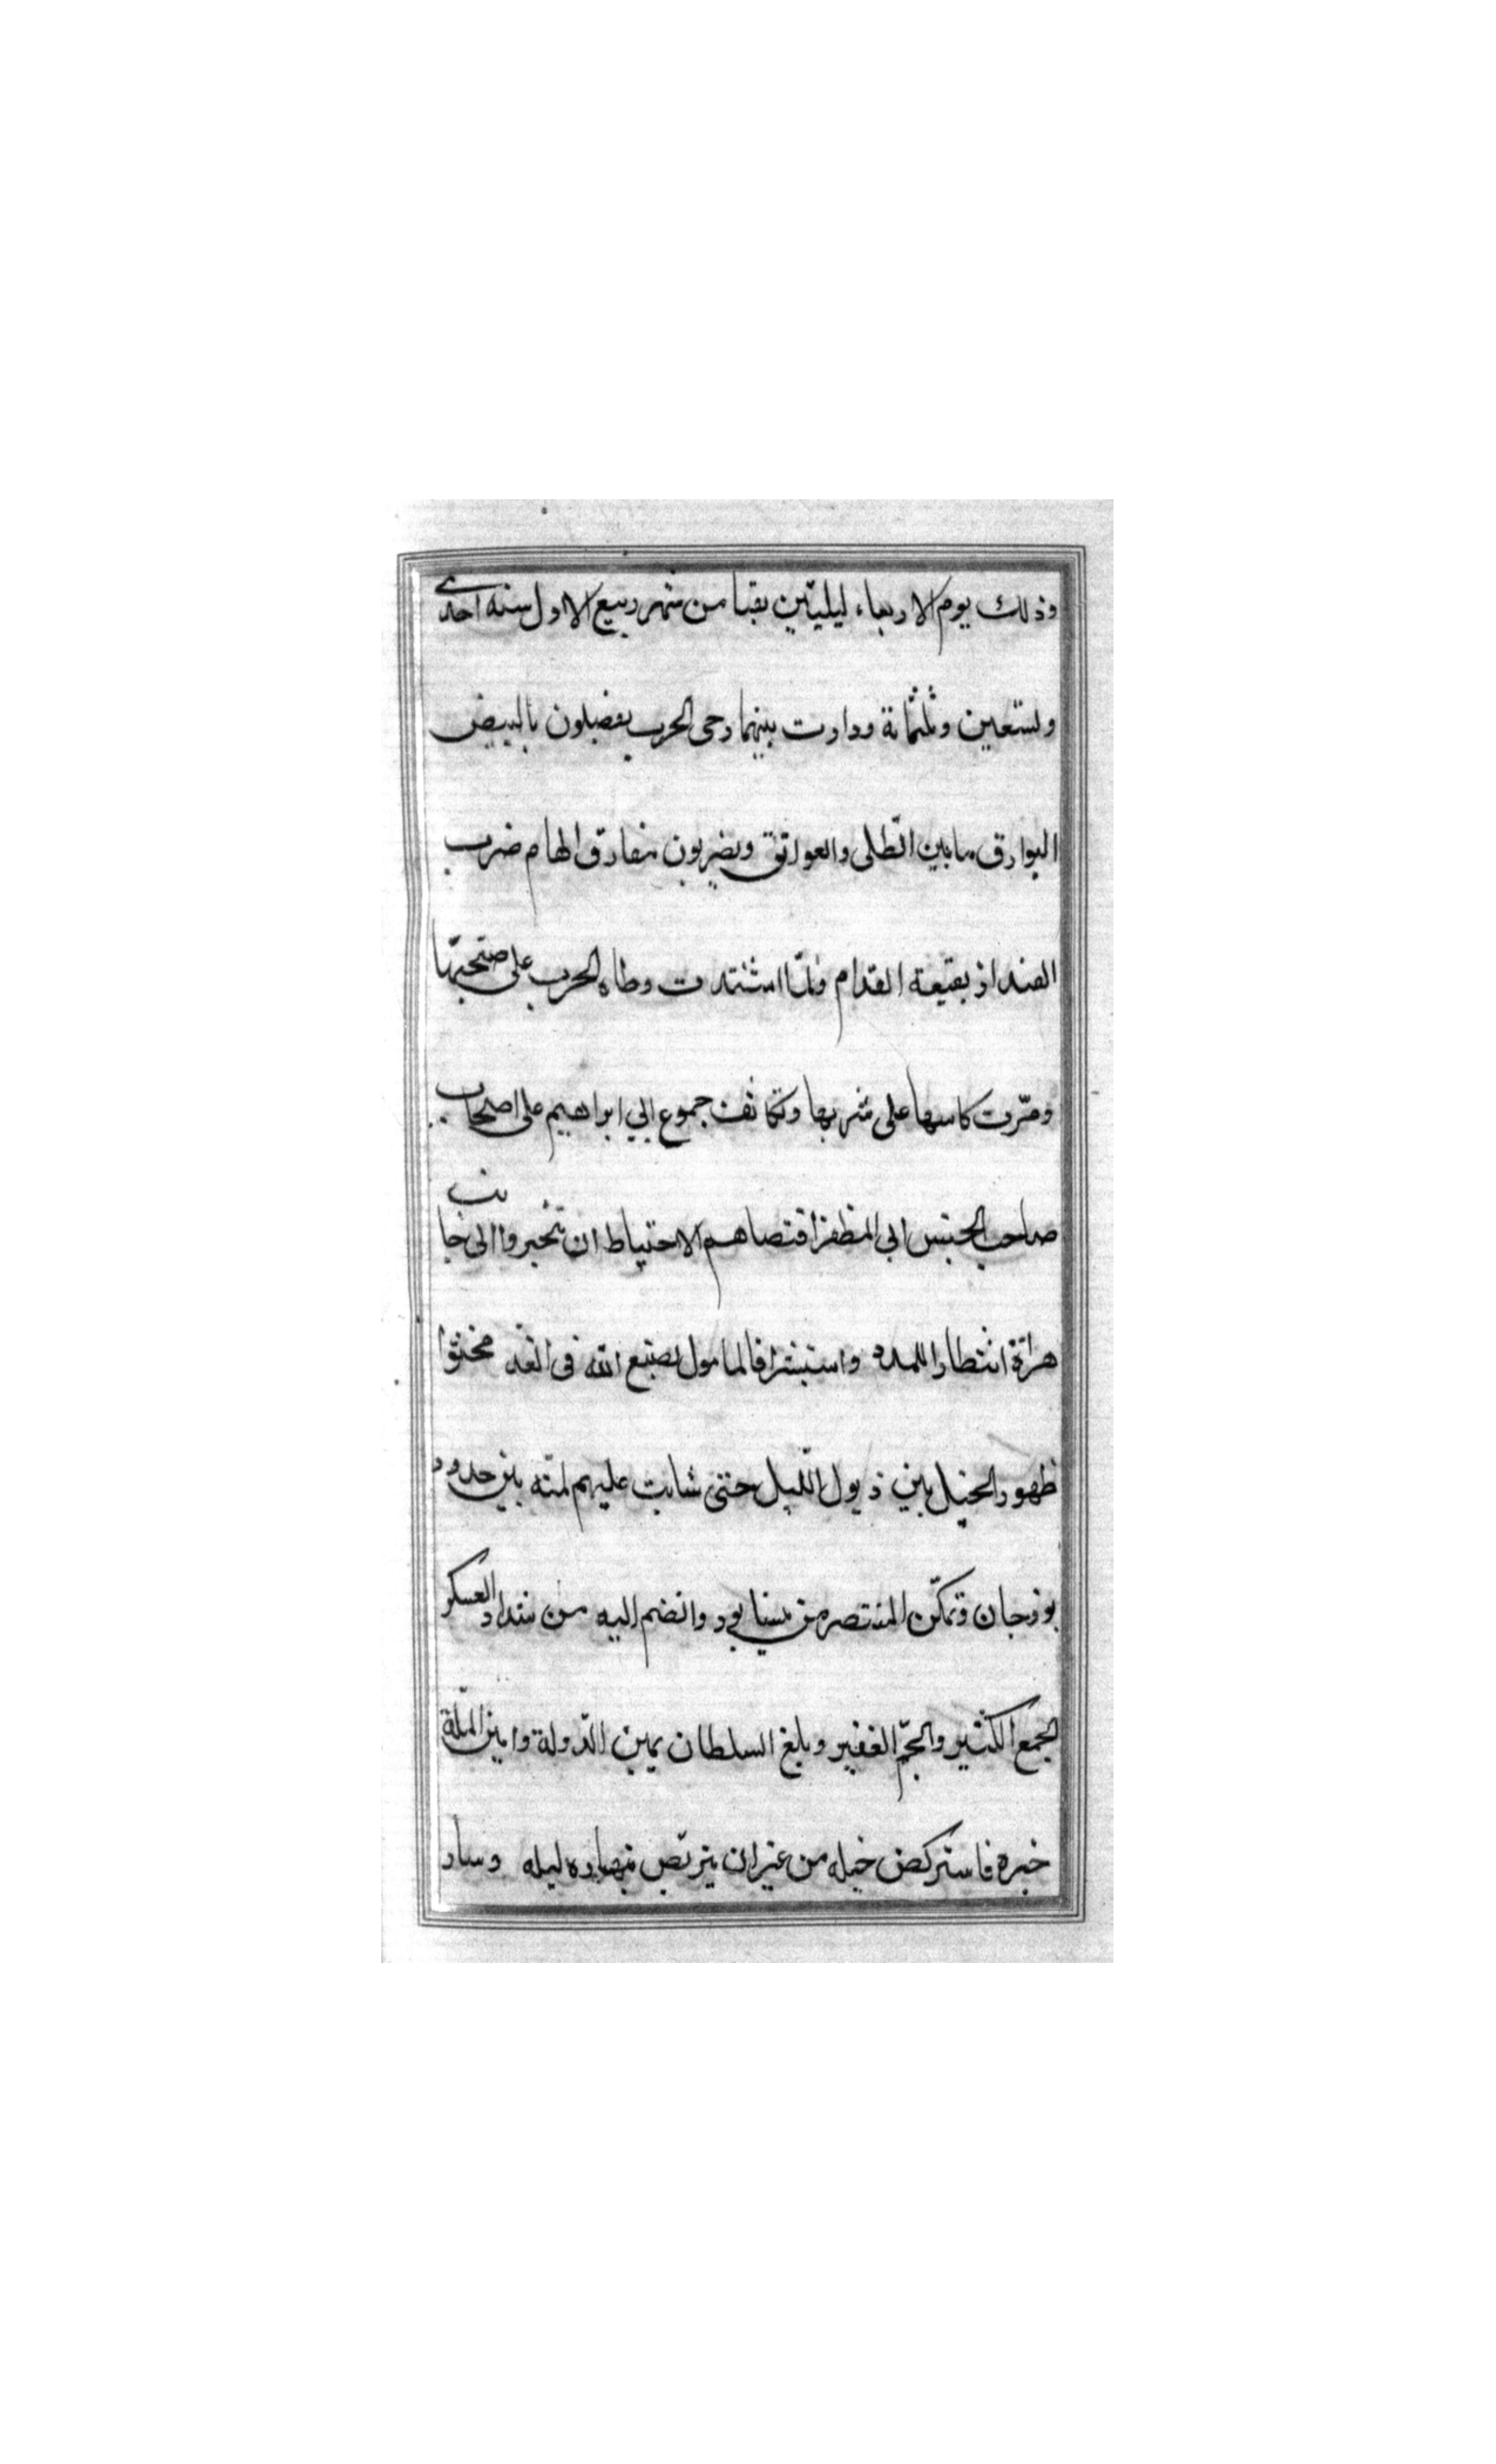 وذلك يوم الاربعاء لليلتين بقيا من شهر ربيع الاول سنه احدى
وتسعين وثلثمائة ودارت بينهما رحى الحرب يفصلون بالبيض
البوارق مابين الطلى والعواتق ويضربون مفارق الهام ضرب
القدار نقيعة القدام فلمّا اشتدت وطاه الحرب على
ومرّت كاسها على شربها وتكاثفت جموع ابي ابراهيم على اصحاب
صاحب الجيش ابي المظفر اقتضاهم الاحتياط ان ينحيزوا الى جانب
هراة انتظارا للمدد واستبشرافا لمامول بصنع الله فى الغد فحثوا
ظهور الخيل بين ذيول اللّيل حتى شابت عليهم لمته بين حدود
بوزجان وتمكّن المنتصر من نيسابور وانضم اليه من شداد العسكر
الجمع الكثير والجمّ الغفير وبلغ السلطان يمين الدّولة وامين الملّة
خبره فاستركض خيله من غير ان يتربّص بنهاره ليله وسار